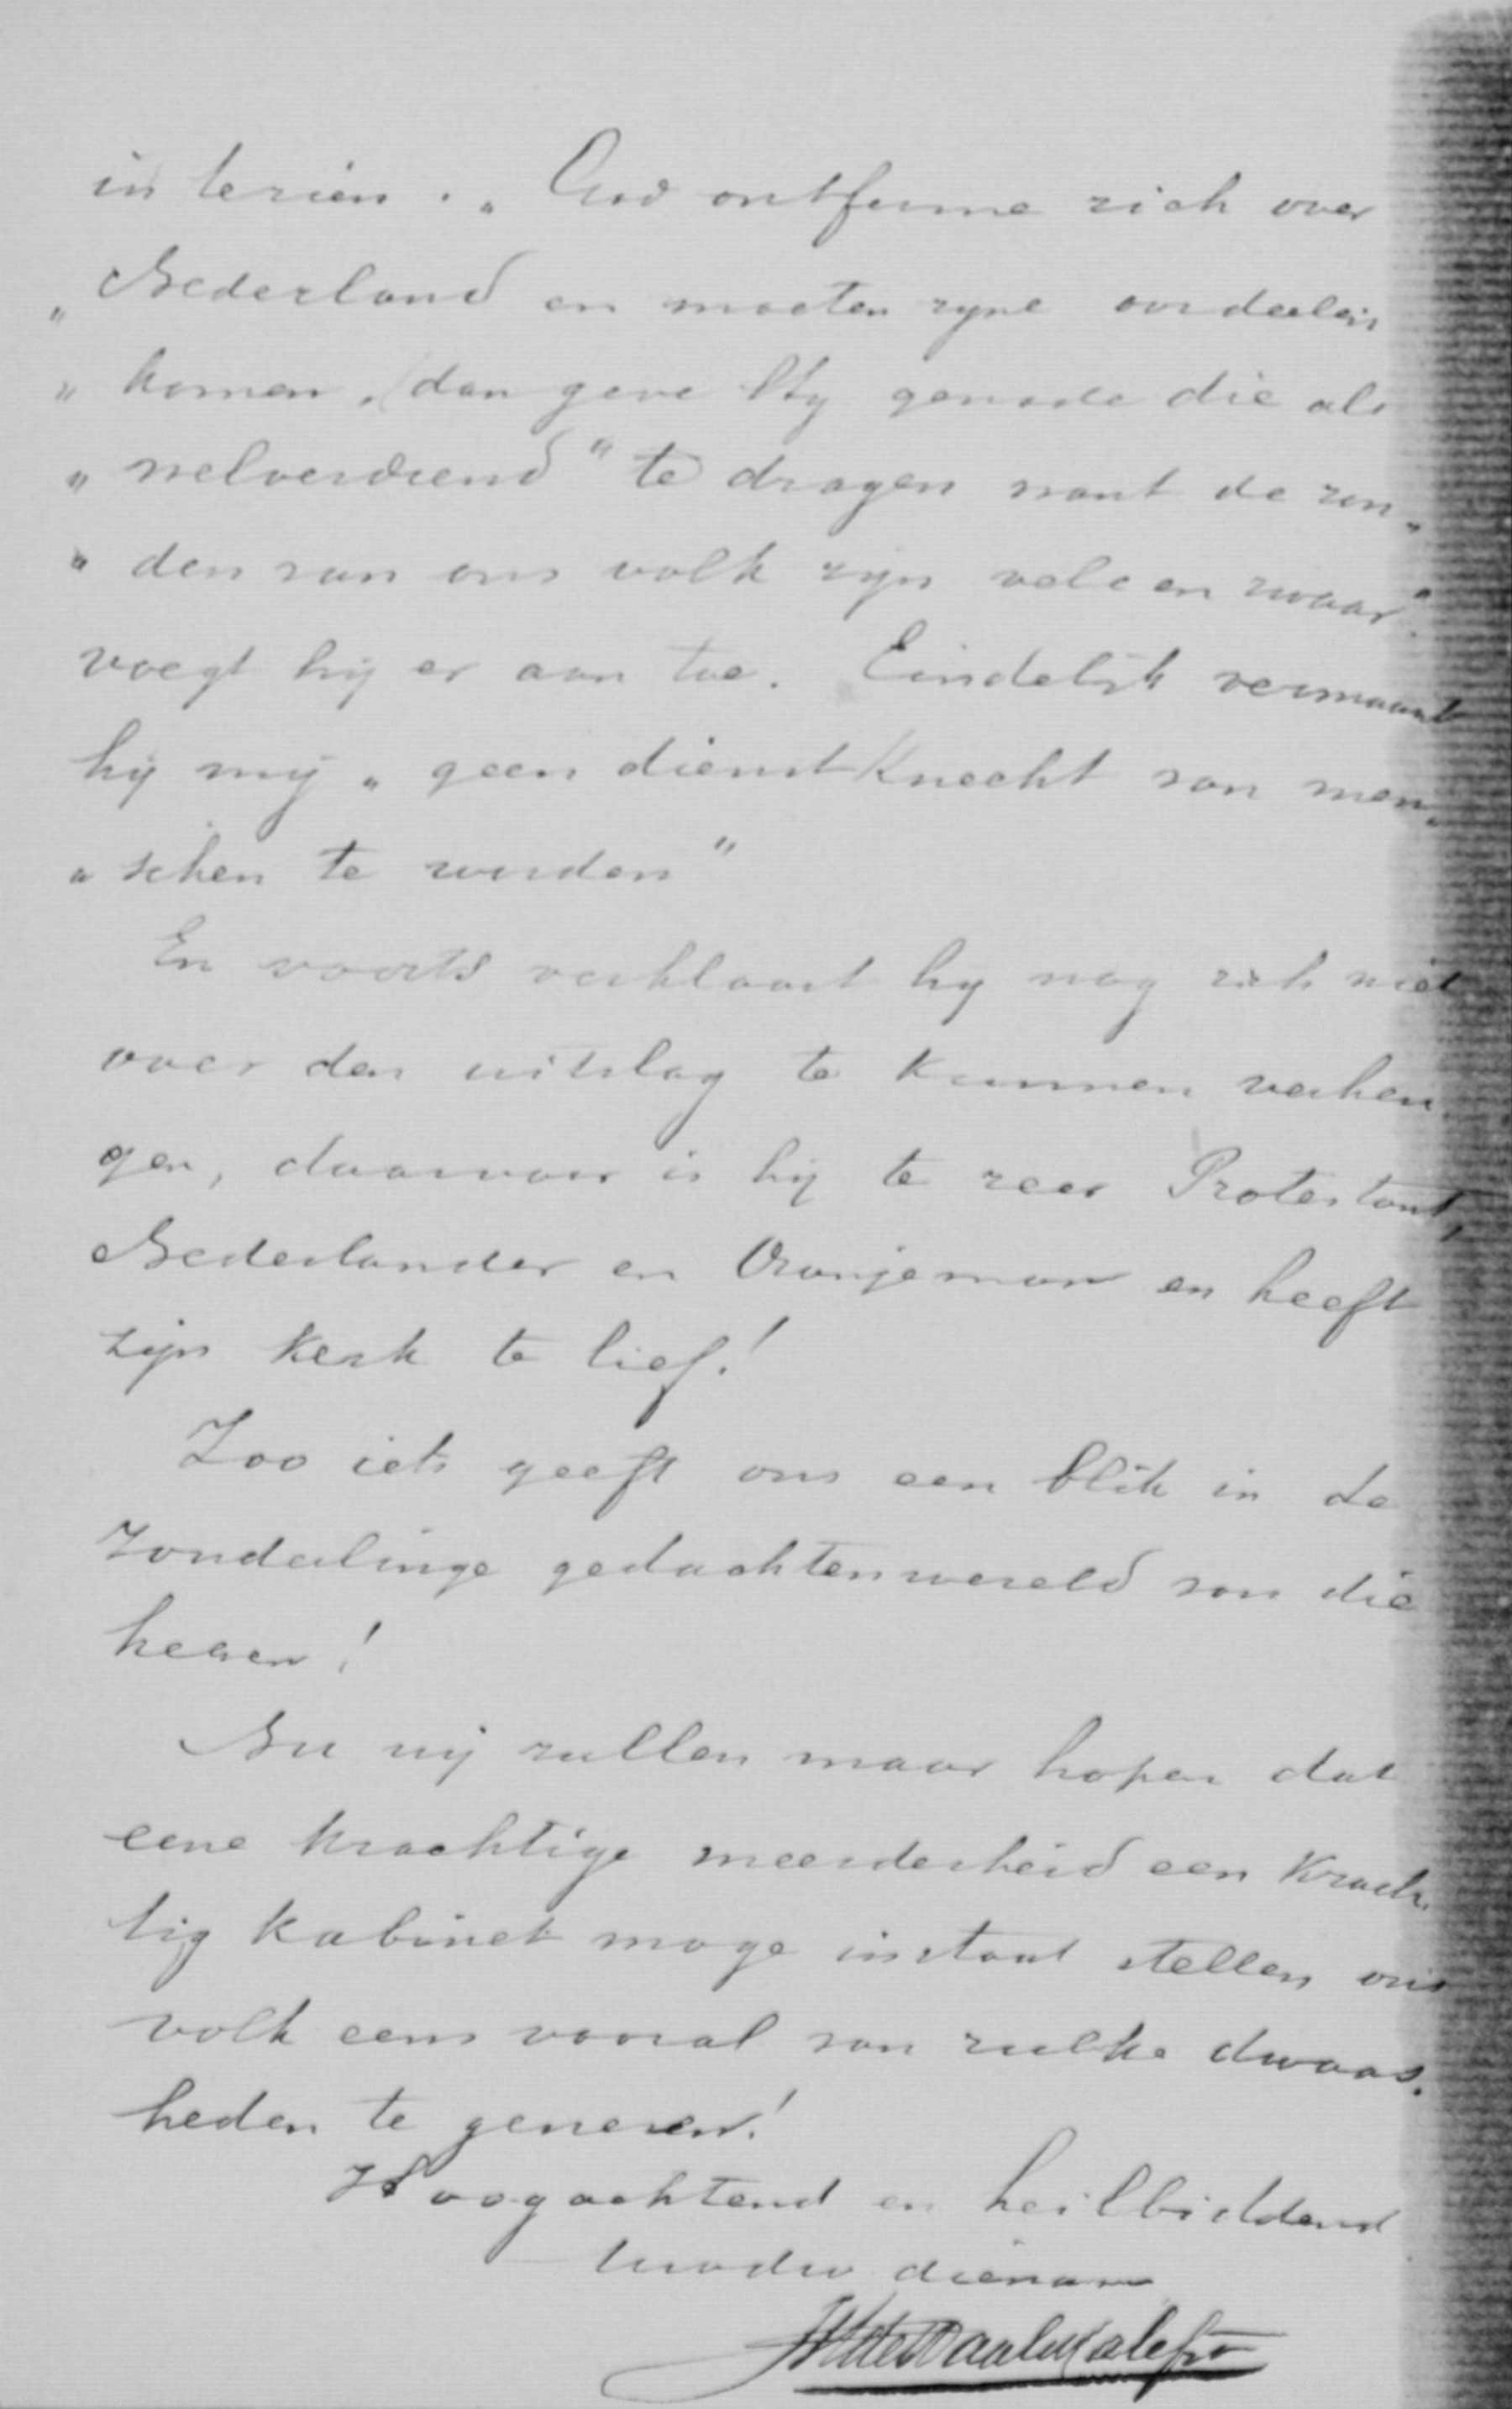 in te zien. „God ontferme zich over
„Nederland en moeten zyne oordeelen
„komen, dan geve Hy genade die als
„welverdiend" te dragen want de zon„
„den van ons volk zyn vele en zwaar".
voegt hij er aan toe. Eindelijk vermaant
hij mij „geen dienstknecht van men„
„schen te worden"
En voorts verklaart hy nog zich niet
over den uitslag te kunnen verheu„
gen, daarvoor is hij te zeer Protestant,
Nederlander en Oranjeman en heeft
zijn Kerk te lief!
Zoo iets geeft ons een blik in de
zonderlinge gedachtenwereld van die
heeren!
Nu wij zullen maar hopen dat
eene krachtige meerderheid een krach„
tig kabinet moge instaat stellen ons
volk eens vooral van zulke dwaas„
heden te genezen!
Hoogachtend en heilbiddend
dienaar